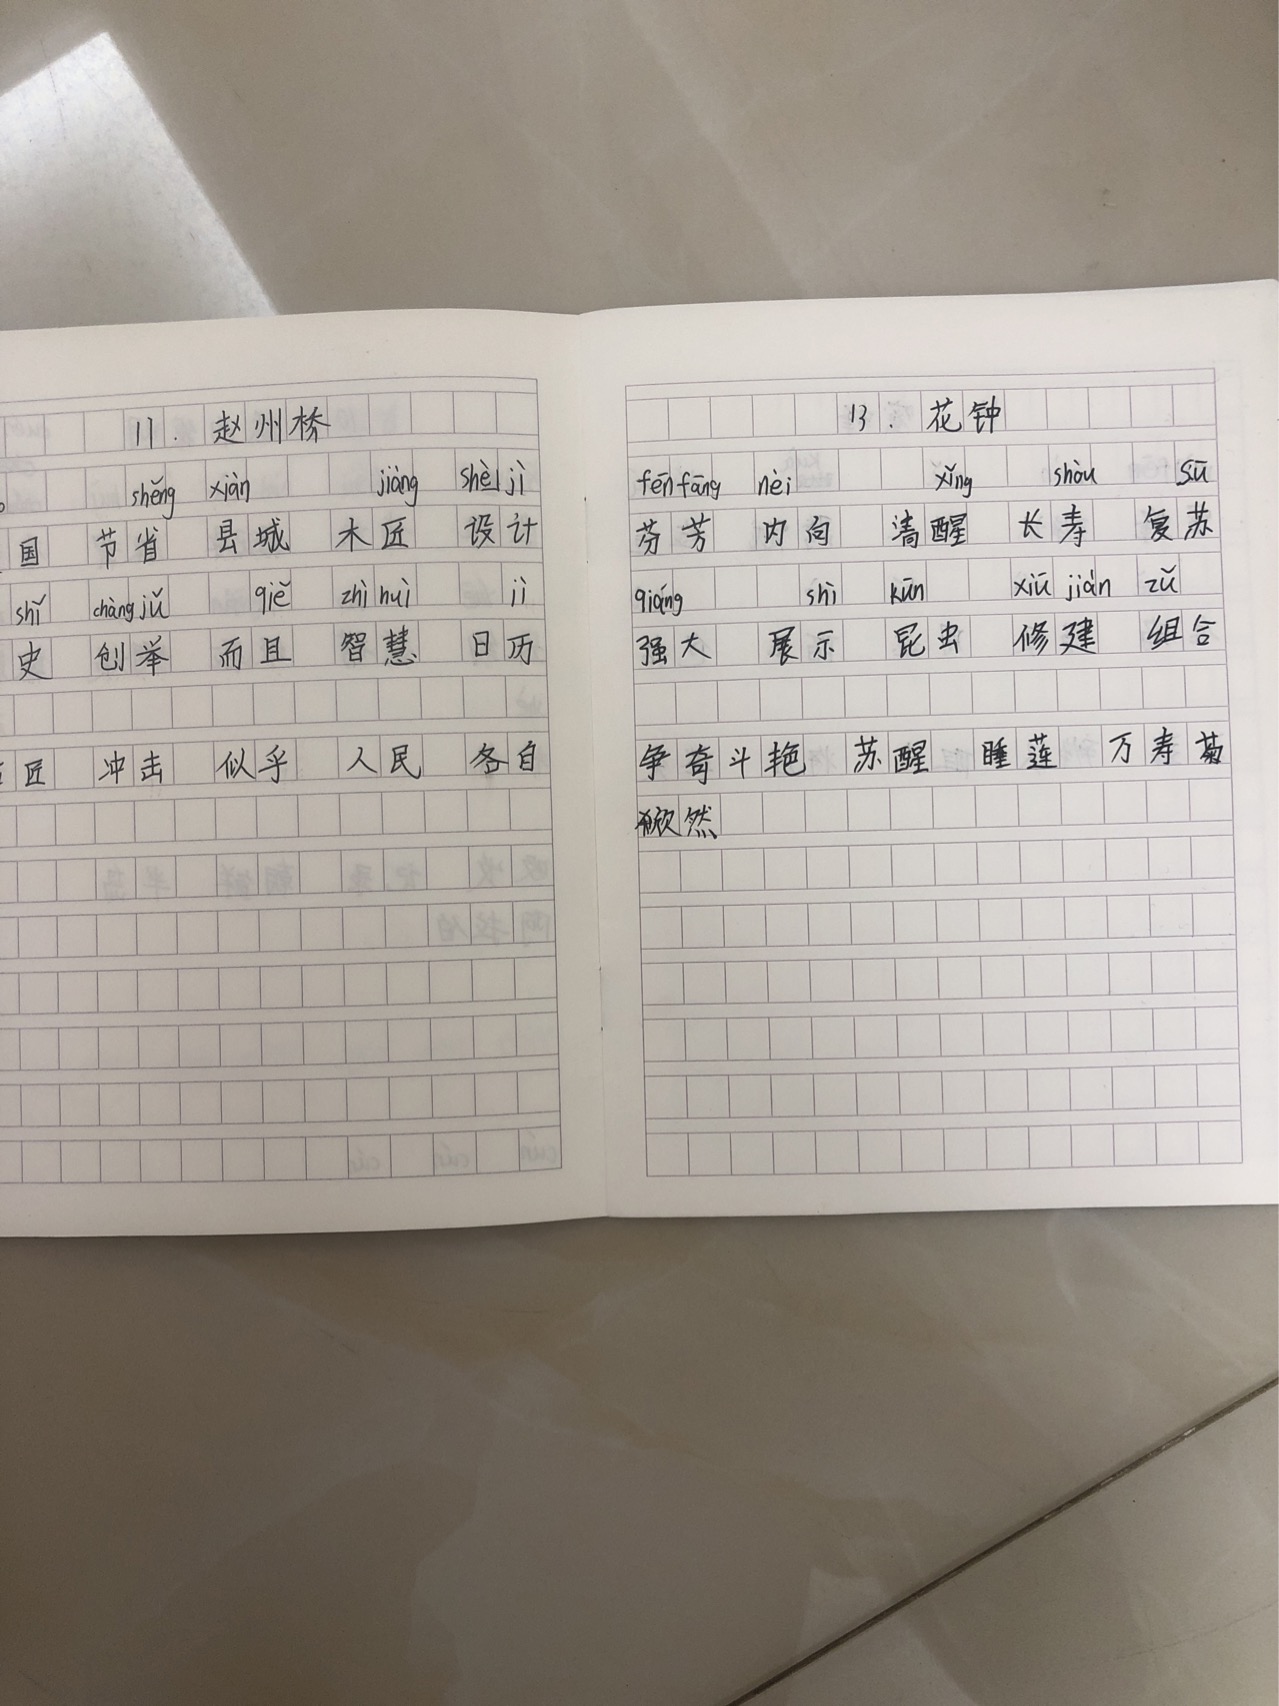 11. 赵州桥
shěng xiàn jiàng shè jì
国 节省 县城 木匠 设计
shǐ chàng jǔ qiě zhì huì jì
史 创举 而且 智慧 日历
匠 冲击 似乎 人民 各自
13. 花钟
fēn fāng nèi xǐng shòu sū
芬芳 内向 清醒 长寿 复苏
qiáng shì kūn xiū jiàn zǔ
强大 展示 昆虫 修建 组合
争奇斗艳 苏醒 睡莲 万寿菊
欣然